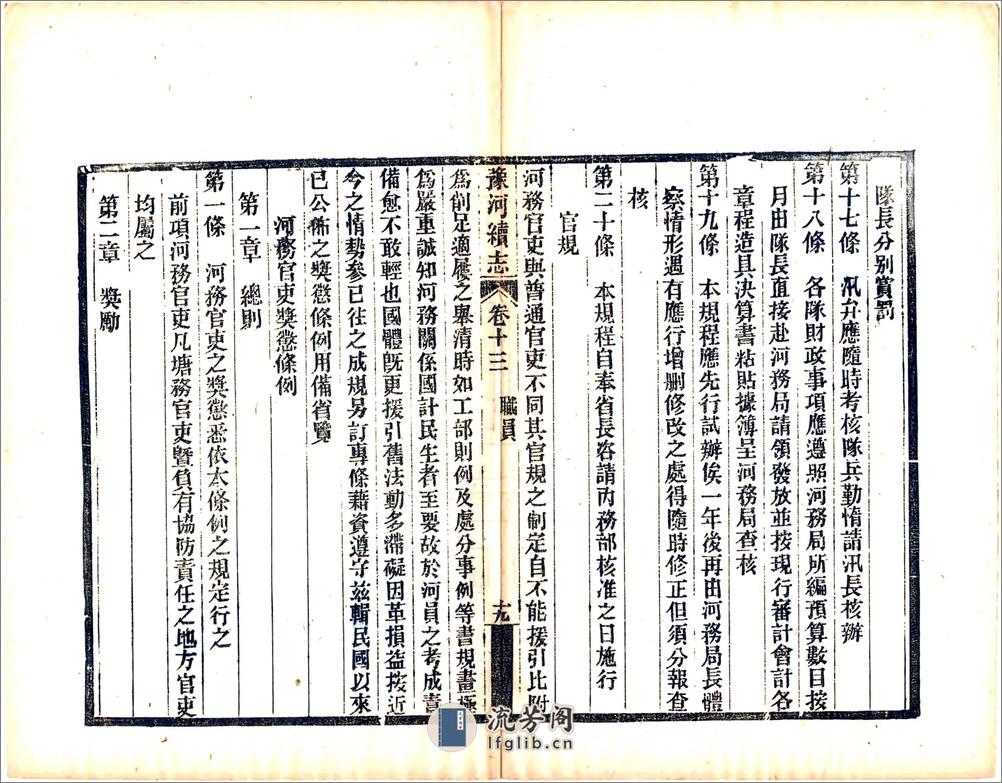 隊長分別賞罰
第十七條　汛弁應隨時考核隊兵勤惰請汛長核辦
第十八條　各隊財政事項應遵照河務局所編預算數目按
月由隊長直接赴河務局請領發放並按現行審計會計各
章程造具決算書粘貼據簿呈河務局查核
第十九條　本規程應先行試辦俟一年後再由河務局長體
察情形遇有應行增刪修改之處得隨時修正但須分報查
核
第二十條　本規程自奉省長咨請內務部核准之日施行
官規
河務官吏與普通官吏不同其官規之制定自不能援引比附
豫河續志　卷十三　職員　十九
為削足適屨之舉清時如工部則例及處分事例等書規畫極
為嚴重誠知河務關係國計民生者至要故於河員之考成責
備愈不敢輕也國體既更援引舊法動多滯礙因革損益按近
今之情勢參已往之成規另訂專條藉資遵守茲輯民國以來
已公布之獎懲條例用備省覽
河務官吏獎懲條例
第一章　總則
第一條　河務官吏之獎懲悉依本條例之規定行之
前項河務官吏凡塘務官吏暨負有協防責任之地方官吏
均屬之
第二章　獎勵
流芳阁
lfglib.cn